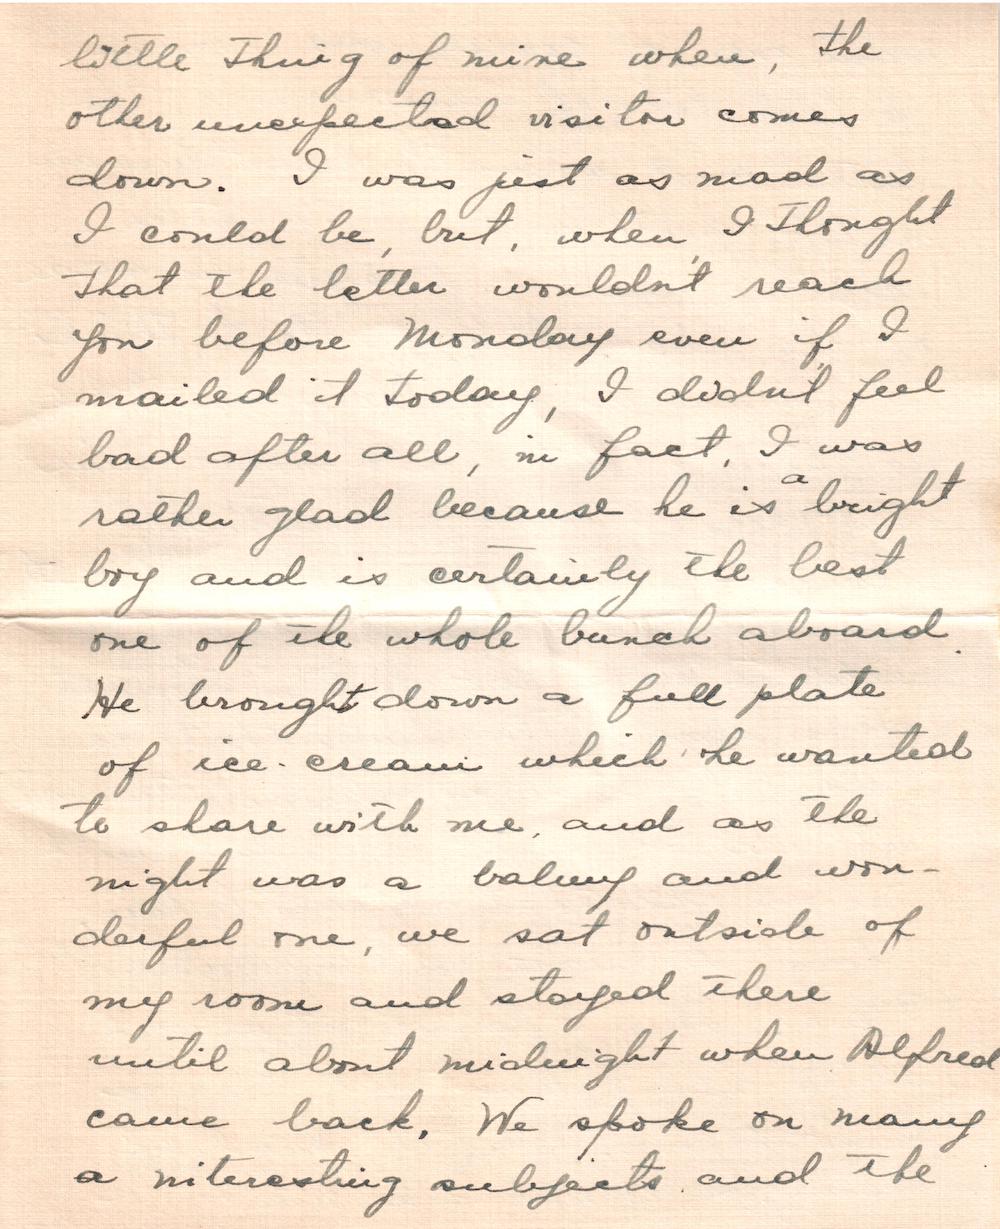 little thing of mine when, the
other unexpected visitor comes
down. I was just as mad as
I could be, but, when, I thought
that the letter wouldn't reach
you before Monday even if I
mailed it today, I didn't feel
bad after all, in fact, I was
rather glad because he is a bright
boy and is certainly the best
one of the whole bunch aboard.
He brought down a full plate
of ice-cream which he wanted
to share with me, and as the
night was a balmy and won-
derful one, we sat outside of
my room and stayed there
until about midnight when Alfred
came back. We spoke on many
a interesting subjects and the